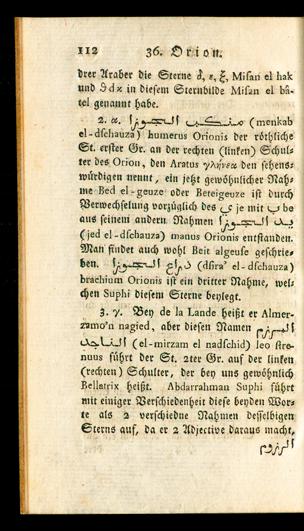 112 36. Orion.
drer Araber die Sterne δ, ε, ξ, Misan el hak
und ϑ d κ in diesem Sternbilde Misan el bâ-
tel genannt habe.
2. α. منكب الجوزا (menkab
el-dschauza) humerus Orionis der röthliche
St. erster Gr. an der rechten (linken) Schul-
ter des Orion, den Aratus γλήνεα den sehens-
würdigen nennt, ein jetzt gewöhnlicher Nah-
me Bed el-geuze oder Beteigeuze ist durch
Verwechselung vorzüglich des ي je mit ب be
aus seinem andern Nahmen يد الجوزا
(jed el-dschauza) manus Orionis entstanden.
Man findet auch wohl Beit algeuse geschrie-
ben. ذراع الجوزا (dsira' el-dschauza)
brachium Orionis ist ein dritter Nahme, wel-
chen Suphi diesem Sterne beylegt.
3. γ. Bey de la Lande heißt er Almer-
zamo'n nagied, aber diesen Namen المرزم
الناجد (el-mirzam el nadschid) leo stre-
nuus führt der St. 2ter Gr. auf der linken
(rechten) Schulter, der bey uns gewöhnlich
Bellatrix heißt. Abdarrahman Suphi führt
mit einiger Verschiedenheit diese beyden Wor-
te als 2 verschiedne Nahmen desselbigen
Sterns auf, da er 2 Adjective daraus macht,
المرزوم